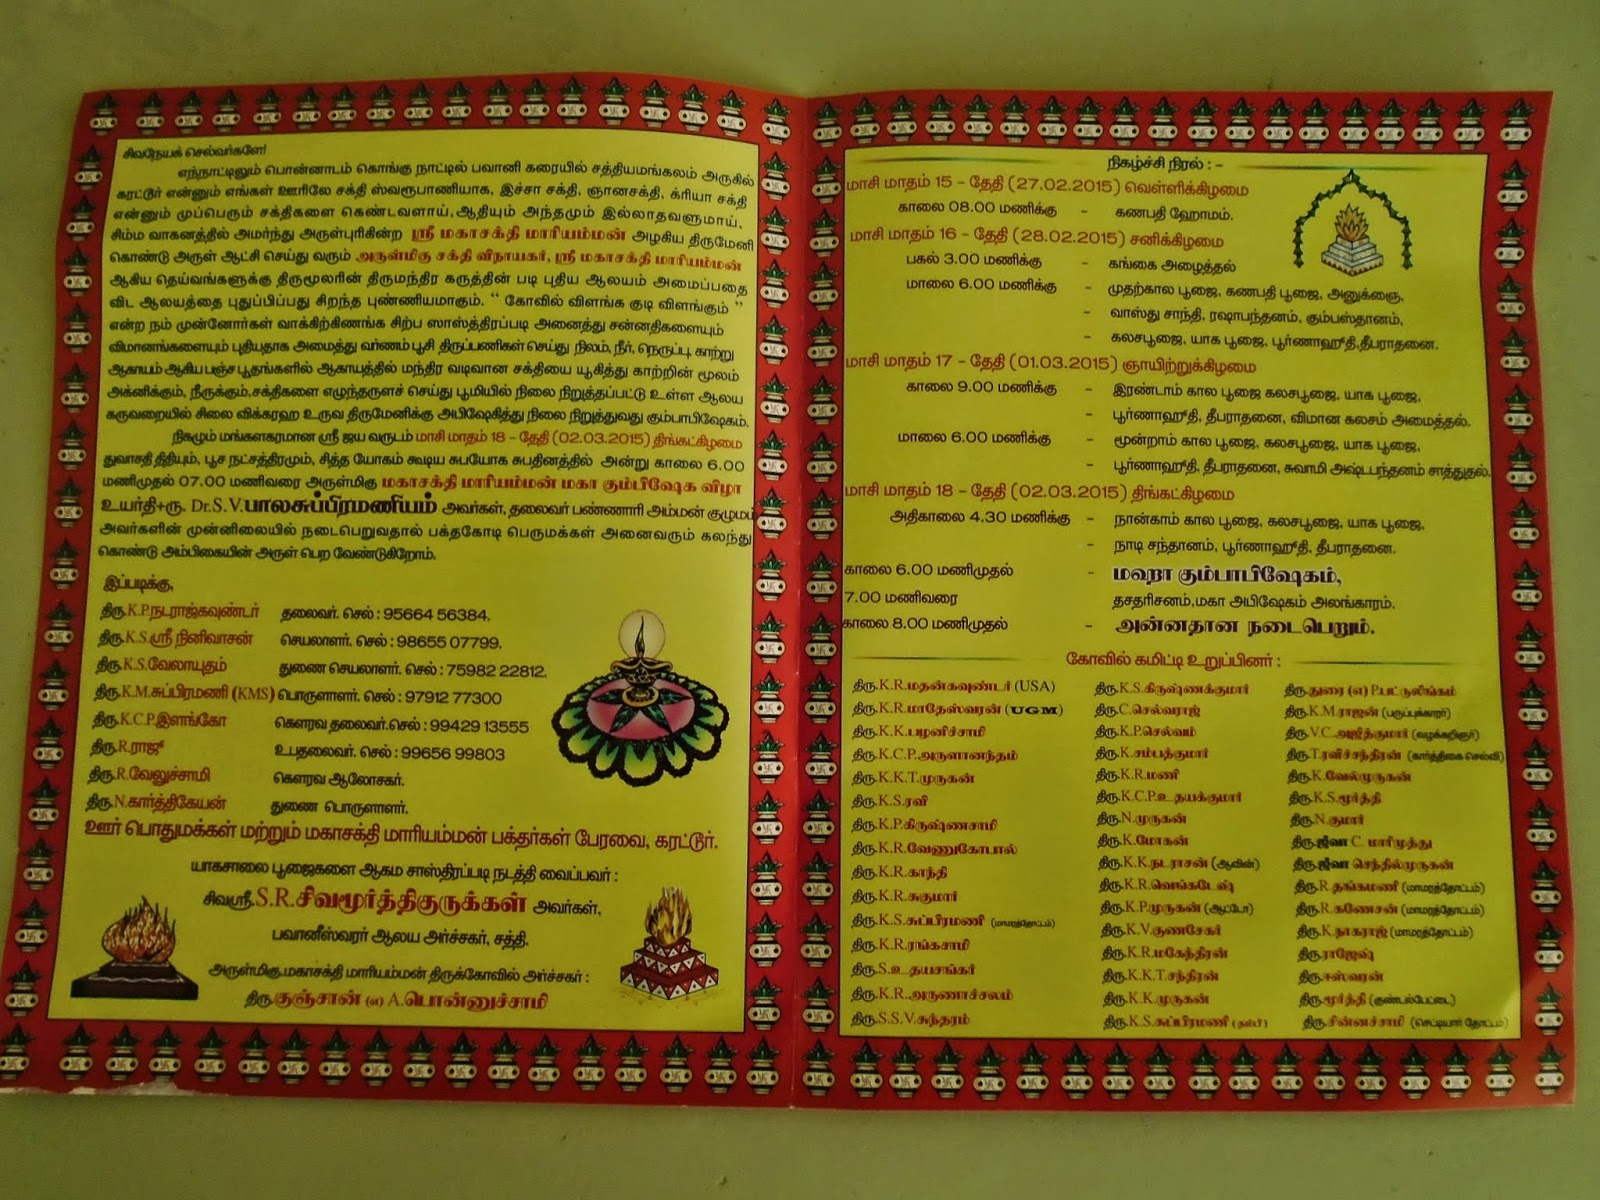 சிவநேயக் செல்வர்களே!
எந்நாட்டிலும் பொன்னாடம் கொங்கு நாட்டில் பவானி கரையில் சத்தியமங்கலம் அருகில்
கரட்டூர் என்னும் எங்கள் ஊரிலே சக்தி ஸ்வரூபாணியாக, இச்சா சக்தி, ஞானசக்தி, க்ரியா சக்தி
என்னும் முப்பெரும் சக்திகளை கெண்டவளாய்,ஆதியும் அந்தமும் இல்லாதவளுமாய்,
சிம்ம வாகனத்தில் அமர்ந்து அருள்புரிகின்ற ஸ்ரீ மகாசக்தி மாரியம்மன் அழகிய திருமேனி
கொண்டு அருள் ஆட்சி செய்து வரும் அருள்மிகு சக்தி விநாயகர், ஸ்ரீ மகாசக்தி மாரியம்மன்
ஆகிய தெய்வங்களுக்கு திருமூலரின் திருமந்திர கருத்தின் படி புதிய ஆலயம் அமைப்பதை
விட ஆலயத்தை புதுப்பிப்பது சிறந்த புண்ணியமாகும். “ கோவில் விளங்க குடி விளங்கும் ”
என்ற நம் முன்னோர்கள் வாக்கிற்கிணங்க சிற்ப ஸாஸ்த்திரப்படி அனைத்து சன்னதிகளையும்
விமானங்களையும் புதியதாக அமைத்து வர்ணம் பூசி திருப்பணிகள் செய்து நிலம், நீர், நெருப்பு, காற்று
ஆகாயம் ஆகிய பஞ்ச பூதங்களில் ஆகாயத்தில் மந்திர வடிவான சக்தியை யூகித்து காற்றின் மூலம்
அக்னிக்கும், நீருக்கும்,சக்திகளை எழுந்தருளச் செய்து பூமியில் நிலை நிறுத்தப்பட்டு உள்ள ஆலய
கருவறையில் சிலை விக்கரஹ உருவ திருமேனிக்கு அபிஷேகித்து நிலை நிறுத்துவது கும்பாபிஷேகம்.
நிகழும் மங்களகரமான ஸ்ரீ ஜய வருடம் மாசி மாதம் 18 – தேதி (02.03.2015) திங்கட்கிழமை
துவாசதி திதியும், பூச நட்சத்திரமும், சித்த யோகம் கூடிய சுபயோக சுபதினத்தில் அன்று காலை 6.00
மணிமுதல் 07.00 மணிவரை அருள்மிகு மகாசக்தி மாரியம்மன் மகா கும்பிஷேக விழா
உயர்தி+ரு. Dr.S.V.பாலசுப்பிரமணியம் அவர்கள், தலைவர் பண்ணாரி அம்மன் குழுமம்
அவர்களின் முன்னிலையில் நடைபெறுவதால் பக்தகோடி பெருமக்கள் அனைவரும் கலந்து
கொண்டு அம்பிகையின் அருள் பெற வேண்டுகிறோம்.
இப்படிக்கு,
திரு.K.P.நடராஜ்கவுண்டர் தலைவர். செல் : 95664 56384.
திரு.K.S.ஸ்ரீ நினிவாசன் செயலாளர். செல் : 98655 07799.
திரு.K.S.வேலாயுதம் துணை செயலாளர். செல் : 75982 22812.
திரு.K.M.சுப்பிரமணி (KMS) பொருளாளர். செல் : 97912 77300
திரு.K.C.P.இளங்கோ கௌரவ தலைவர்.செல் : 99429 13555
திரு.R.ராஜூ உபதலைவர். செல் : 99656 99803
திரு.R.வேலுச்சாமி கௌரவ ஆலோசகர்.
திரு.N.கார்த்திகேயன் துணை பொருளாளர்.
ஊர் பொதுமக்கள் மற்றும் மகாசக்தி மாரியம்மன் பக்தர்கள் பேரவை, கரட்டூர்.
யாகசாலை பூஜைகளை ஆகம சாஸ்திரப்படி நடத்தி வைப்பவர் :
சிவஸ்ரீ.S.R.சிவமூர்த்திகுருக்கள் அவர்கள்,
பவானீஸ்வரர் ஆலய அர்ச்சகர், சத்தி.
அருள்மிகு.மகாசக்தி மாரியம்மன் திருக்கோவில் அர்ச்சகர் :
திரு.குஞ்சான் (எ) A.பொன்னுச்சாமி
நிகழ்ச்சி நிரல் : –
மாசி மாதம் 15 – தேதி (27.02.2015) வெள்ளிக்கிழமை
காலை 08.00 மணிக்கு – கணபதி ஹோமம்.
மாசி மாதம் 16 – தேதி (28.02.2015) சனிக்கிழமை
பகல் 3.00 மணிக்கு – கங்கை அழைத்தல்
மாலை 6.00 மணிக்கு – முதற்கால பூஜை, கணபதி பூஜை, அனுக்ஞை,
– வாஸ்து சாந்தி, ரஷாபந்தனம், கும்பஸ்தானம்,
– கலசபூஜை, யாக பூஜை, பூர்ணாஹீதி,தீபராதனை.
மாசி மாதம் 17 – தேதி (01.03.2015) ஞாயிற்றுக்கிழமை
காலை 9.00 மணிக்கு – இரண்டாம் கால பூஜை கலசபூஜை, யாக பூஜை,
– பூர்ணாஹீதி, தீபராதனை, விமான கலசம் அமைத்தல்.
மாலை 6.00 மணிக்கு – மூன்றாம் கால பூஜை, கலசபூஜை, யாக பூஜை,
– பூர்ணாஹீதி, தீபராதனை, சுவாமி அஷ்டபந்தனம் சாத்துதல்.
மாசி மாதம் 18 – தேதி (02.03.2015) திங்கட்கிழமை
அதிகாலை 4.30 மணிக்கு – நான்காம் கால பூஜை, கலசபூஜை, யாக பூஜை,
– நாடி சந்தானம், பூர்ணாஹீதி, தீபராதனை.
காலை 6.00 மணிமுதல் – மஹா கும்பாபிஷேகம்,
7.00 மணிவரை தசதரிசனம்,மகா அபிஷேகம் அலங்காரம்.
காலை 8.00 மணிமுதல் – அன்னதான நடைபெறும்.
கோவில் கமிட்டி உறுப்பினர் :
திரு.K.R.மதன்கவுண்டர் (USA)
திரு.K.R.மாதேஸ்வரன் (UGM)
திரு.K.K.பழனிச்சாமி
திரு.K.C.P.அருளானந்தம்
திரு.K.K.T.முருகன்
திரு.K.S.ரவி
திரு.K.P.கிருஷ்ணசாமி
திரு.K.R.வேணுகோபால்
திரு.K.R.காந்தி
திரு.K.R.சுகுமார்
திரு.K.S.சுப்பிரமணி (மாமரத்தோட்டம்)
திரு.K.R.ரங்கசாமி
திரு.S.உதயசங்கர்
திரு.K.R.அருணாச்சலம்
திரு.S.S.V.சுந்தரம்
திரு.K.S.கிருஷ்ணக்குமார்
திரு.C.செல்வராஜ்
திரு.K.P.செல்வம்
திரு.K.சம்பத்குமார்
திரு.K.R.மணி
திரு.K.C.P.உதயக்குமார்
திரு.N.முருகன்
திரு.K.மோகன்
திரு.K.K.நடராசன் (ஆவின்)
திரு.K.R.வெங்கடேஷ்
திரு.K.P.முருகன் (ஆட்டோ)
திரு.K.V.குணசேகர்
திரு.K.R.மகேந்திரன்
திரு.K.K.T.சந்திரன்
திரு.K.K.முருகன்
திரு.K.S.சுப்பிரமணி (தம்பி)
திரு.துரை (எ) P.பட்டுலிங்கம்
திரு.K.M.ராஜன் (பருப்புக்காரர்)
திரு.V.C.அஜீத்குமார் (வழக்கறிஞர்)
திரு.T.ரவிச்சந்திரன் (கார்த்திகை செல்வி)
திரு.K.வேல்முருகன்
திரு.K.S.மூர்த்தி
திரு.N.குமார்
திரு.ஜீவா C. மாரிமுத்து
திரு.ஜீவா செந்தில்முருகன்
திரு.R.தங்கமணி (மாமரத்தோட்டம்)
திரு.R.கணேசன் (மாமரத்தோட்டம்)
திரு.K.நாகராஜ் (மாமரத்தோட்டம்)
திரு.ராஜேஷ்
திரு.ஈஸ்வரன்
திரு.மூர்த்தி (குண்டல்பேட்டை)
திரு.சின்னச்சாமி (செட்டியார் தோட்டம்)